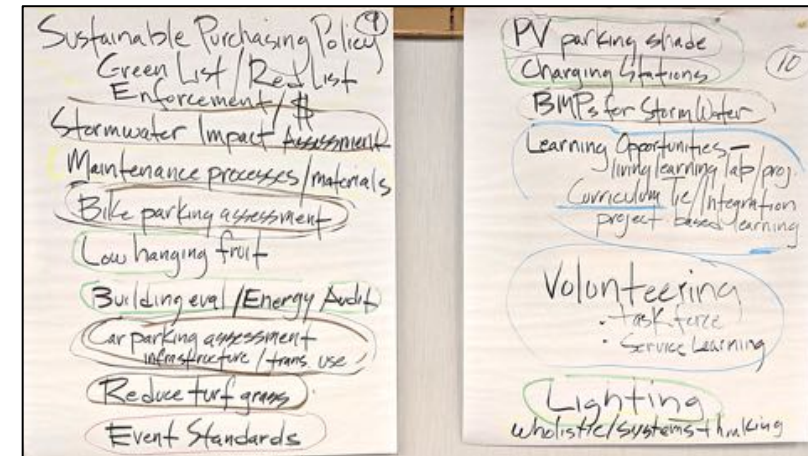 Sustainable Purchasing Policy 9
Green List / Red List
Enforcement / $
Stormwater Impact Assessment
Maintenance processes/materials
Bike parking assessment
Low hanging fruit
Building eval /Energy Audit
Car parking assessment
infrastructure / trans. use
Reduce turf grass
Event Standards
PV parking shade
10
Charging Stations
BMPs for StormWater
Learning Opportunities –
living learning lab/proj.
Curriculum Tie/Integration
project based learning
Volunteering
• Task force
• Service Learning
Lighting
wholistic/systems thinking